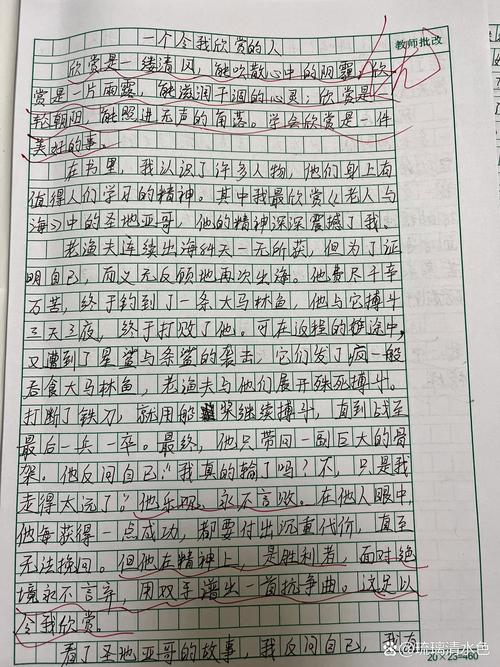 一个令我欣赏的人
教师批改
欣赏是一缕清风，能吹散心中的阴霾；欣
赏是一片雨露，能滋润干涸的心灵；欣赏是一
轮朝阳，能照进无声的角落。学会欣赏是一件
美好的事。
在书里，我认识了许多人物，他们身上有
值得人们学习的精神。其中我最欣赏《老人与
海》中的圣地亚哥，他的精神深深震撼了我。
老渔夫连续出海84天一无所获，但为了证
明自己，而义无反顾地再次出海。他费尽千辛
万苦，终于钓到了一条大马林鱼，他与它搏斗
三天3夜，终于打败了他。可在返程的途中，
又遭到了星鲨与条鲨的袭击，它们发了疯一般
吞食大马林鱼，老渔夫与他们展开殊死搏斗。
打断了铁刀，就用船桨继续搏斗，直到战至
最后一兵一卒。最终，他只带回一副巨大的骨
架。他反问自己："我真的输了吗？不，只是我
走得太远了"，他乐观、永不言败。在他人眼中，
他每获得一点成功，都要付出沉重代价，直至
无法挽回。但他在精神上，是胜利者，面对绝
境永不言弃，用双手谱出一首抗争曲。这足以
令我欣赏。
看了圣地亚哥的故事，我反问自己，我有
20×23=460
@琉璃清水色